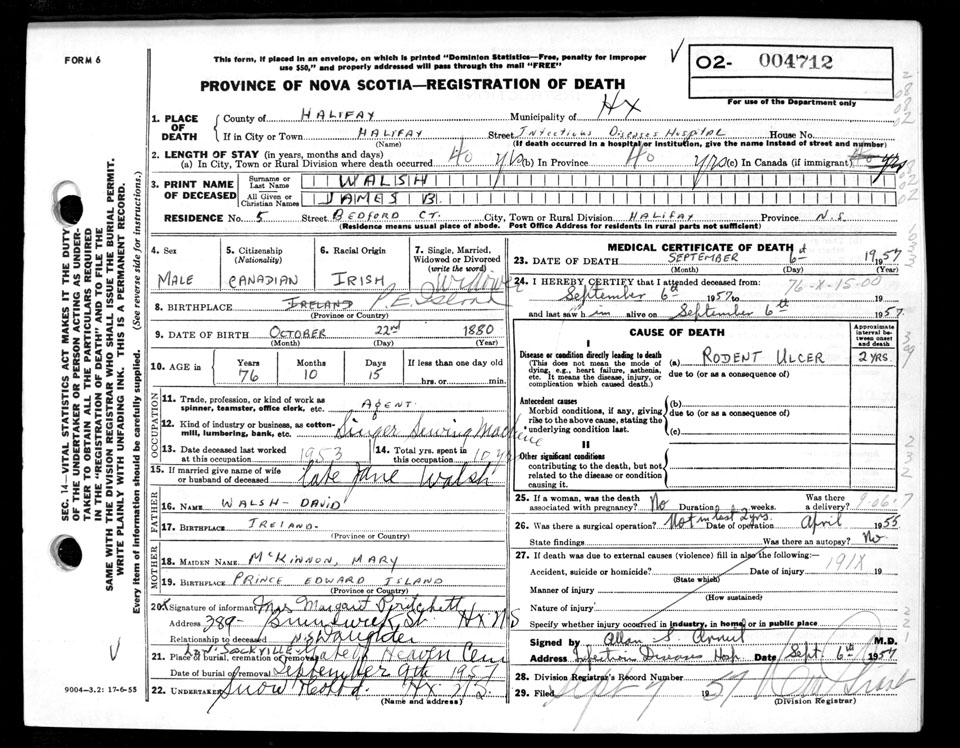 FORM 6
This form, if placed in an envelope, on which is printed "Dominion Statistics—Free, penalty for improper
use $50," and properly addressed will pass through the mail "FREE"
O2- 004712
PROVINCE OF NOVA SCOTIA—REGISTRATION OF DEATH
For use of the Department only
1. PLACE OF DEATH
County of HALIFAX Municipality of HX
If in City or Town HALIFAX Street Infectious Diseases Hospital House No.
(Name) (If death occurred in a hospital or institution, give the name instead of street and number)
2. LENGTH OF STAY (in years, months and days)
(a) In City, Town or Rural Division where death occurred 40 yrs (b) In Province 40 yrs (c) In Canada (if immigrant) yrs
3. PRINT NAME OF DECEASED
Surname or Last Name WALSH
All Given or Christian Names JAMES B.
RESIDENCE No. 5 Street BEDFORD CT. City, Town or Rural Division HALIFAX Province N.S.
(Residence means usual place of abode. Post Office Address for residents in rural parts not sufficient)
4. Sex MALE
5. Citizenship (Nationality) CANADIAN
6. Racial Origin IRISH
7. Single, Married, Widowed or Divorced (write the word) Widower
8. BIRTHPLACE IRELAND P. E. Island
(Province or Country)
9. DATE OF BIRTH OCTOBER 22nd 1880
(Month) (Day) (Year)
10. AGE in Years 76 Months 10 Days 15 If less than one day old hrs. or min.
OCCUPATION
11. Trade, profession, or kind of work as spinner, teamster, office clerk, etc. AGENT.
12. Kind of industry or business, as cotton-mill, lumbering, bank, etc. Singer Sewing Machine
13. Date deceased last worked at this occupation 1953
14. Total yrs. spent in this occupation 10 yrs
15. If married give name of wife or husband of deceased late Jane Walsh
FATHER
16. NAME WALSH - DAVID
17. BIRTHPLACE IRELAND.
(Province or Country)
MOTHER
18. MAIDEN NAME McKINNON, MARY
19. BIRTHPLACE PRINCE EDWARD ISLAND
(Province or Country)
20. Signature of informant Mrs Margaret Pritchett
Address 389- Brunswick St. Hx NS
Relationship to deceased Daughter
21. Place of burial, cremation or removal SACKVILLE Gate of Heaven Cem
Date of burial or removal September 9th 1957
22. UNDERTAKER Snow Hx. N.S.
(Name and address)
MEDICAL CERTIFICATE OF DEATH
23. DATE OF DEATH SEPTEMBER 6th 1957
(Month) (Day) (Year)
76-X-15-00
24. I HEREBY CERTIFY that I attended deceased from:
September 6th 1957 to 19
and last saw him alive on September 6th 1957.
CAUSE OF DEATH
Approximate interval between onset and death
I
Disease or condition directly leading to death
(This does not mean the mode of dying, e.g., heart failure, asthenia, etc. It means the disease, injury, or complication which caused death.)
(a) RODENT ULCER 2 YRS.
due to (or as a consequence of)
Antecedent causes
Morbid conditions, if any, giving rise to the above cause, stating the underlying condition last.
(b)
due to (or as a consequence of)
(c)
II
Other significant conditions
contributing to the death, but not related to the disease or condition causing it.
25. If a woman, was the death associated with pregnancy? No Duration weeks. Was there a delivery?
26. Was there a surgical operation? Not in last 2 yrs. Date of operation April 1955
State findings Was there an autopsy? No
27. If death was due to external causes (violence) fill in also the following:—
Accident, suicide or homicide? Date of injury 191X 19
(State which)
Manner of injury
(How sustained)
Nature of injury
Specify whether injury occurred in industry, in home or in public place
Signed by Allan S. M.D.
Address Infectious Diseases Hosp. Date Sept. 6th 1957
28. Division Registrar's Record Number
29. Filed Sept 9 1957
(Division Registrar)
SEC. 14—VITAL STATISTICS ACT MAKES IT THE DUTY
OF THE UNDERTAKER OR PERSON ACTING AS UNDER-
TAKER TO OBTAIN ALL THE PARTICULARS REQUIRED
IN THE "REGISTRATION OF DEATH" AND TO FILE THE
SAME WITH THE DIVISION REGISTRAR WHO SHALL ISSUE THE BURIAL PERMIT.
WRITE PLAINLY WITH UNFADING INK. THIS IS A PERMANENT RECORD.
Every item of information should be carefully supplied. (See reverse side for instructions.)
9004-3.2: 17-6-55